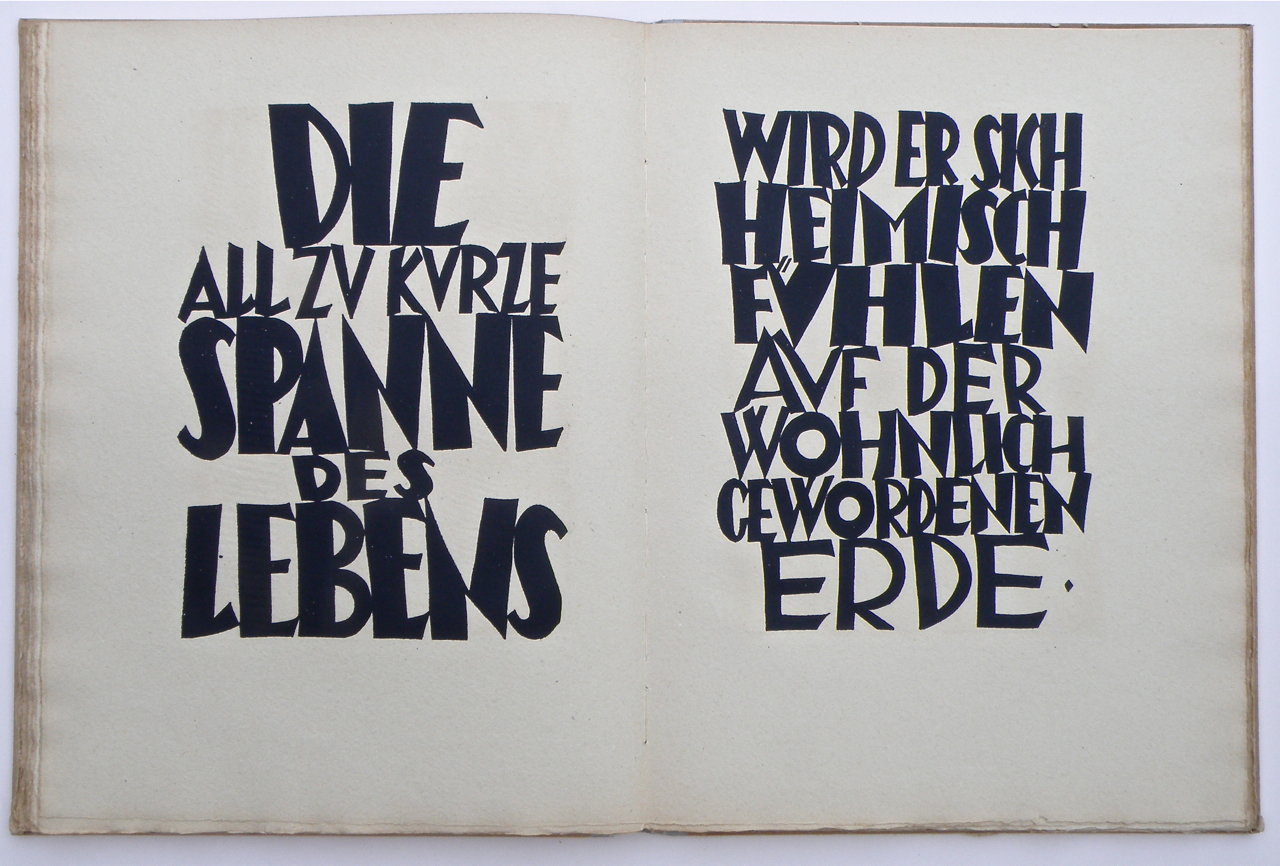 DIE
ALL ZV KVRZE
SPANNE
DES
LEBENS
WIRD ER SICH
HEIMISCH
FV̈HLEN
AVF DER
WOHNLICH
GEWORDENEN
ERDE.